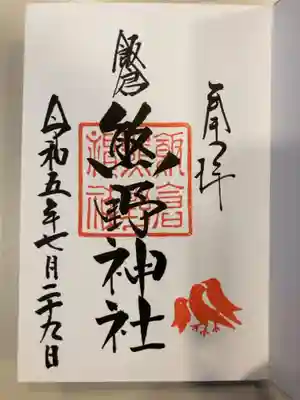 奉拝
飯倉
熊野神社
令和五年七月二十九日